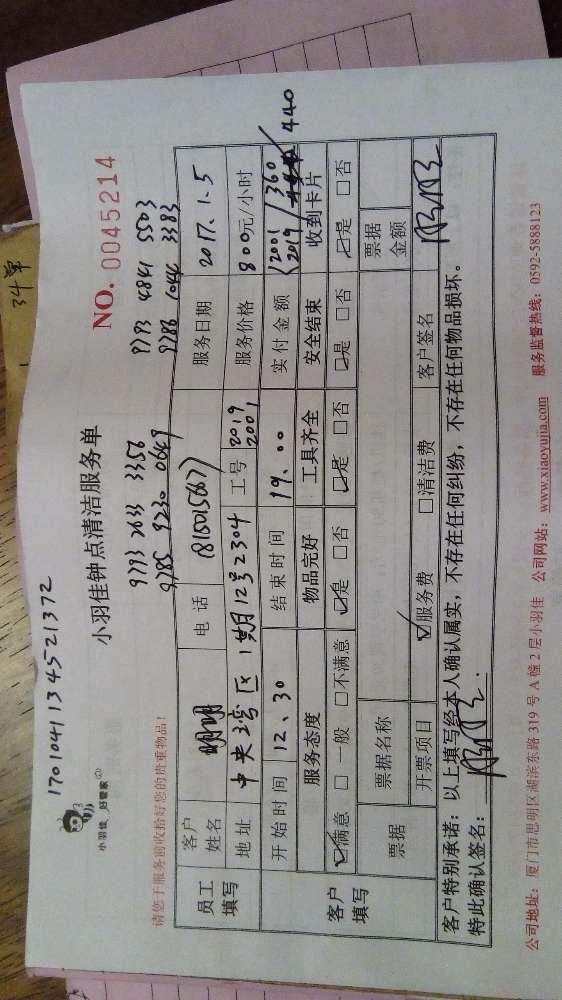 34单
1701041134521372
小羽佳 好管家
NO. 0045214
小羽佳钟点清洁服务单
9773 2633 3356 9793 4841 5503
9785 9230 0649 9786 1044 3383
请您于服务前收拾好您的贵重物品!
员工填写 客户姓名 明明 电话 18150156677 服务日期 2017.1.5
地址 中央湾区1期12号2304 工号 2019 2001 服务价格 800元/小时
开始时间 12、30 结束时间 19、00 实付金额 2001/360 2019/440
客户填写 服务态度 物品完好 工具齐全 安全结束 收到卡片
☑满意 □一般 □不满意 ☑是 □否 ☑是 □否 ☑是 □否 ☑是 □否
票据 票据名称 票据金额
开票项目 ☑服务费 □清洁费 客户签名
客户特别承诺:以上填写经本人确认属实,不存在任何纠纷,不存在任何物品损坏。
特此确认签名:
公司地址:厦门市思明区湖滨东路319号A幢2层小羽佳 公司网站:www.xiaoyujia.com 服务监督热线:0592-5888123